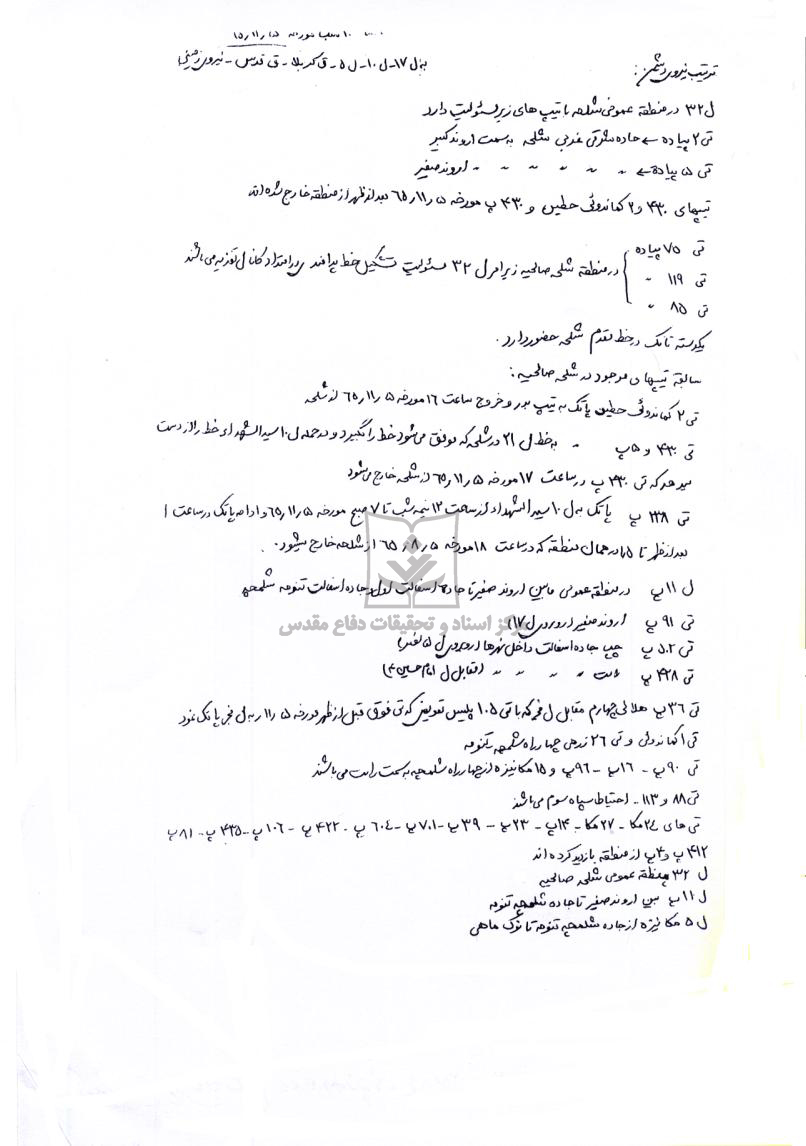 ۱۰ شب مورخه ۱۵ر۱۱ر۶۵
به ل ۱۷ - ل ۱۰ - ل ۵ - ق کربلا - ق قدس - نیروی زمینی
ترتیب نیروی دشمن:
ل ۳۲ در منطقه عمومی شلحه با تیپ های زیر مسئولیت دارد
تی ۲ پیاده ← جاده شرقی غربی شلحه به سمت اروند کبیر
تی ۵ پیاده ← " " " " " اروند صغیر
تیپهای ۴۳۰ و ۲ کماندوئی حطین و ۴۳۰ پ مورخه ۵ر۱۱ر۶۵ بعد از ظهر از منطقه خارج شده اند
تی ۷۵ پیاده
تی ۱۱۹ "
تی ۸۵ "
در منطقه شلحه صالحیه زیر امر ل ۳۲ مسئولیت تشکیل خط پدافندی در امتداد کانال توزیه می باشند
یکدسته تانک در خط مقدم شلحه حضور دارد.
سابقه تیپهای موجود در شلحه صالحیه:
تی ۲ کماندوئی حطین پاتک به تیپ بدر و خروج ساعت ۱۶ مورخه ۵ر۱۱ر۶۵ از شلحه
تی ۴۳۰ و ۵ پ " به خط ل ۲۱ در شلحه که موفق می شود خط را بگیرد و در حمله ل ۱۰ سیدالشهداء خط را از دست
میدهد که تی ۴۳۰ پ در ساعت ۱۷ مورخه ۵ر۱۱ر۶۵ از شلحه خارج می شود
تی ۲۳۸ پ پاتک به ل ۱۰ سیدالشهداء از ساعت ۱۲ نیمه شب تا ۷ صبح مورخه ۵ر۱۱ر۶۵ و ادامه پاتک در ساعت ۱
بعد از ظهر تا ۱۵ در همان منطقه که در ساعت ۱۸ مورخه ۵ر۸ر۶۵ از شلحه خارج میشود.
ل ۱۱ پ در منطقه عمومی مابین اروند صغیر تا جاده اسفالت اول و جاده اسفالت تنومه شلمچه
مرکز اسناد و تحقیقات دفاع مقدس
تی ۹۱ پ اروند صغیر (روبروی ل ۱۷)
تی ۵۰۲ پ چپ جاده اسفالت داخل نهرها (روبروی ل ۵ نصر)
تی ۴۲۸ پ راست " " " " (مقابل ل امام حسین ع)
تی ۳۶ پ هلالی چهارم مقابل ل فجر که با تی ۱۰۵ پلیس تعویض که تی فوق قبل از ظهر مورخه ۵ر۱۱ به ل فجر پاتک نمود
تی ۱ کماندوئی و تی ۲۶ زرهی چهار راه شلمچه تنومه
تی ۹۰ پ - ۱۶ پ - ۹۶ پ و ۱۵ مکانیزه از چهار راه شلمچه به سمت راست می باشند
تی ۸۸ و ۱۱۳ - احتیاط سپاه سوم می باشند
تی های ۲۴ مکا - ۲۷ مکا - ۱۴ پ - ۲۳ پ - ۳۹ پ - ۷۰۱ پ - ۶۰۴ پ - ۴۲۲ پ - ۱۰۶ پ - ۴۳۵ پ - ۸۱ پ
۴۱۲ پ و ۴ پ از منطقه بازدید کرده اند
ل ۳۲ منطقه عمومی شلحه صالحیه
ل ۱۱ پ بین اروند صغیر تا جاده شلمچه تنومه
ل ۵ مکانیزه از جاده شلمچه تنومه تا نوک ماهی